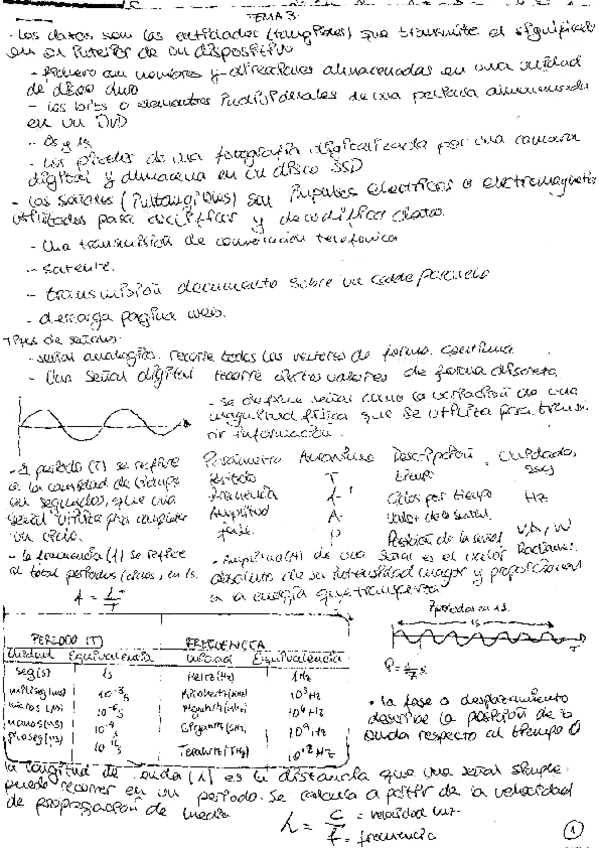 TEMA 3.
- Los datos son las entidades (tangibles) que transmite el significado
en su interior de un dispositivo
- Fichero con nombres y direcciones almacenadas en una unidad
de disco duro
- Los bits o elementos individuales de una película almacenada
en un DVD
- 0s y 1s
- Los pixeles de una fotografía digitalizada por una camara
digital y almacena en un disco SSD
- Las señales (intangibles) son impulsos eléctricos o eletromagnetic
utilizados para codificar y decodificar datos.
- Una transmisión de conversación telefonica
- satelite.
- transmisión documento sobre un
- descarga pagina web.
Tipos de señales.
- señal analogica. recorre todos los valores de forma continua
- Una señal digital recorre ciertos valores de forma discreta
- se define señal como la variación de una
magnitud física que se utiliza para transmi
tir información.
- El periodo (T) se refiere
a la cantidad de tiempo
en segundos, que una
señal utiliza para completar
un ciclo.
- la frecuencia (f) se refiere
al total periodos (ciclos) en 1s.
f = 1/T
Parámetro Acronimo Descripción Unidades
Periodo T tiempo seg
Frecuencia f Ciclos por tiempo Hz
Amplitud A valor de la señal V, A, W
fase P Posición de la señal Radianes
- Amplitud (A) de una señal es el valor
absoluto de su intensidad mayor y proporcional
a la energía que transporta
7 periodos en 1s.
1s
T
P = 1/7 s
PERIODO (T) FRECUENCIA
Unidad Equivalencia Unidad Equivalencia
Seg (s) 1s Hertz (Hz) 1Hz
miliseg (ms) 10⁻³ s Kilohertz (KHz) 10³ Hz
micros (µs) 10⁻⁶ s Megahertz (MHz) 10⁶ Hz
nanos (ns) 10⁻⁹ s Gigahertz (GHz) 10⁹ Hz
picoseg (ps) Terahertz (THz) 10¹² Hz
- la fase o desplazamiento
describe la posición de la
onda respecto al tiempo 0
la longitud de onda (λ) es la distancia que una señal simple
puede recorrer en un periodo. Se calcula a partir de la velocidad
de propagación de medio
λ = c/f = velocidad luz.
= frecuencia
1